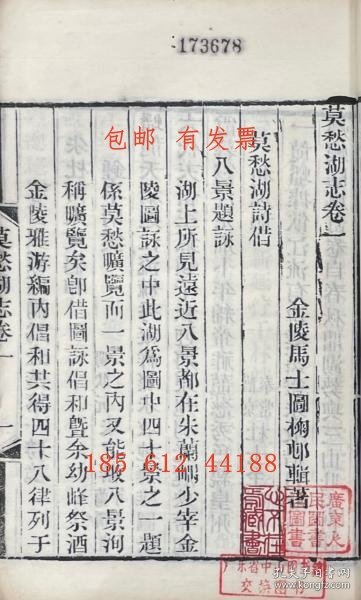 173678
包邮 有发票
莫愁湖志卷一
金陵馬士圖梅邨輯著
莫愁湖詩借
八景題詠
湖上所見遠近八景都在朱蘭嵎少宰金
陵圖詠之中此湖為圖中四十景之一題
係莫愁曠覽而一景之內又能取八景洵
稱曠覽矣卽借圖詠倡和暨余幼峰祭酒
金陵雅游編內倡和共得四十八律列于
莫愁湖志卷一
一
185 612 44188
交換圖書
孔夫子旧书网